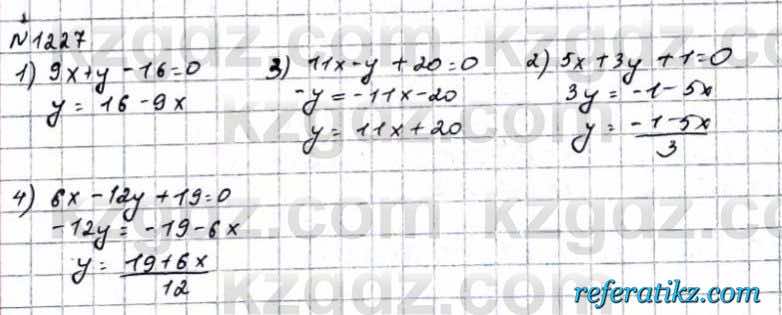 №1227
1) 9x+y-16=0
y = 16-9x
3) 11x-y+20=0
-y=-11x-20
y=11x+20
2) 5x+3y+1=0
3y=-1-5x
y=\frac{-1-5x}{3}
4) 6x-12y+19=0
-12y=-19-6x
y=\frac{19+6x}{12}
kzgdz.com
referatikz.com